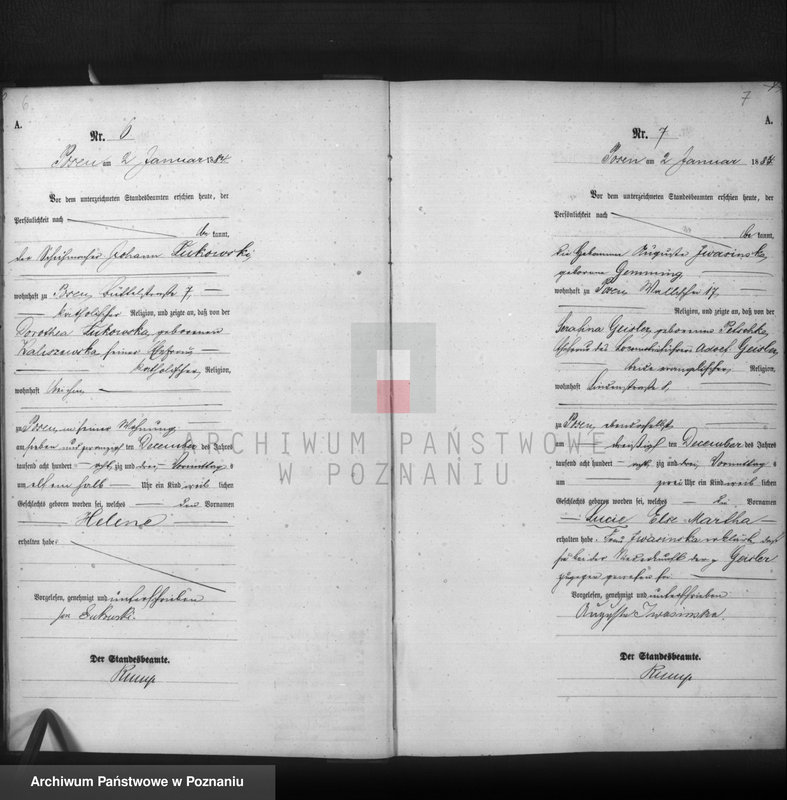 6
A.
Nr. 6
Posen am 2 Januar 1884
Vor dem unterzeichneten Standesbeamten erschien heute, der
Persönlichkeit nach
be kannt,
der Schuhmacher Johann Lukowski,
wohnhaft zu Posen, Büttelstraße 7,
katholischer Religion, und zeigte an, daß von der
Dorothea Lukowska, geborenen
Kaliszewska, seiner Ehefrau
katholischer Religion,
wohnhaft bei ihm
zu Posen in seiner Wohnung
am sieben und zwanzigsten December des Jahres
tausend acht hundert acht zig und drei Vormittag s
um elf ein halb Uhr ein Kind weib lichen
Geschlechts geboren worden sei, welches den Vornamen
Helene
erhalten habe.
Vorgelesen, genehmigt und unterschrieben
Jan Łukowski.
Der Standesbeamte.
Kump
7
A.
Nr. 7
Posen am 2 Januar 1884
Vor dem unterzeichneten Standesbeamten erschien heute, der
Persönlichkeit nach
be kannt,
die Hebamme Auguste Iwasinska,
geborene Gemming
wohnhaft zu Posen Wallischei 17,
Religion, und zeigte an, daß von der
Geisler, geborene Petschke,
Ehefrau des Adolf Geisler,
beide evangelischer Religion,
wohnhaft Lindenstraße
zu Posen, ebendaselbst
am dreißigsten December des Jahres
tausend acht hundert acht zig und drei Vormittag s
um zwei Uhr ein Kind weib lichen
Geschlechts geboren worden sei, welches die Vornamen
Lucie Else Martha
erhalten habe. Frau Iwasinska erklärt, daß
sie bei der Niederkunft der Geisler
zugegen gewesen sei
Vorgelesen, genehmigt und unterschrieben
Auguste Iwasinska.
Der Standesbeamte.
Kump
ARCHIWUM PAŃSTWOWE
W POZNANIU
Archiwum Państwowe w Poznaniu